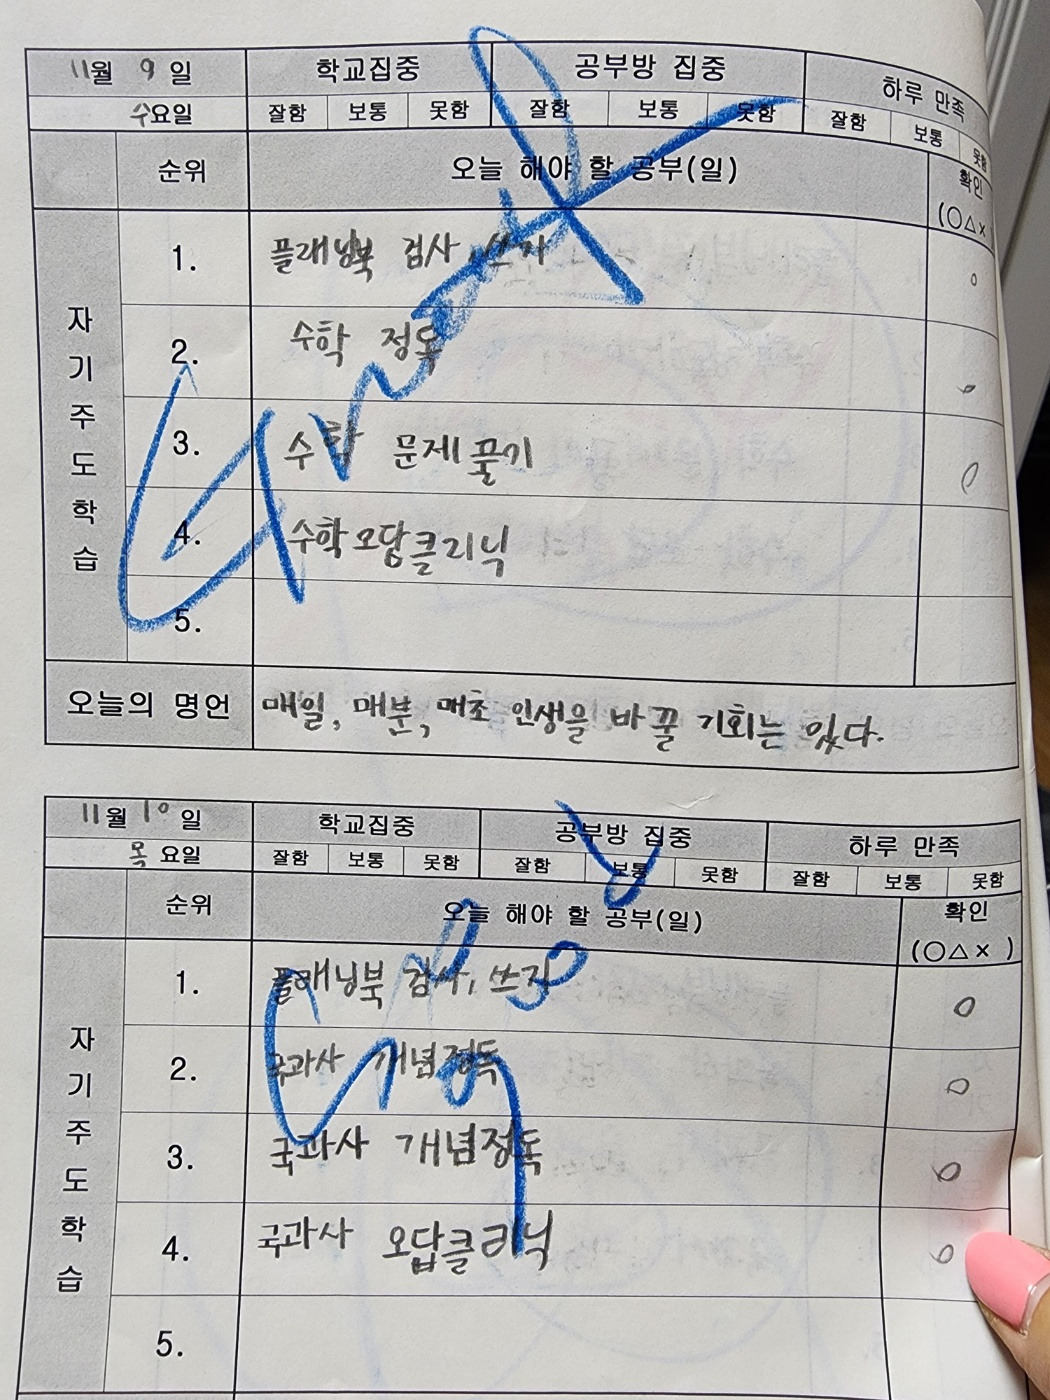 11월 9일 학교집중 공부방 집중 하루 만족
수요일 잘함 보통 못함 잘함 보통 못함 잘함 보통 못함
순위 오늘 해야 할 공부(일) 확인
(○△×
자기주도학습
1. 플래닝북 검사, 쓰기
2. 수학 정독
3. 수학 문제 풀기
4. 수학오답클리닉
5.
오늘의 명언 매일, 매분, 매초 인생을 바꿀 기회는 있다.
11월 10일 학교집중 공부방 집중 하루 만족
목요일 잘함 보통 못함 잘함 보통 못함 잘함 보통 못함
순위 오늘 해야 할 공부(일) 확인
(○△× )
자기주도학습
1. 플래닝북 검사, 쓰기
2. 국과사 개념정독
3. 국과사 개념정독
4. 국과사 오답클리닉
5.